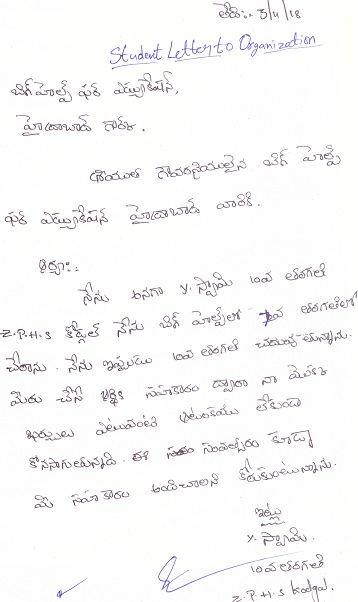 తేది:- 3/4/18
Student Letter to Organization
బిగ్ హెల్ప్ ఫర్ ఎడ్యుకేషన్,
హైదరాబాద్
గౌరవనియులైన బిగ్ హెల్ప్
ఫర్ ఎడ్యుకేషన్ హైదరాబాద్ వారికి.
నేను అనగా Y. స్వామి 10వ తరగతి
Z.P.H.S నేను బిగ్ హెల్ప్ లో 7వ తరగతిలో
చేరాను. నేను ఇప్పుడు 10వ తరగతి చదువుతున్నాను.
మీరు చేసే ఆర్థిక సహకారం ద్వారా నా
ఎటువంటి లేకుండా
కొనసాగుతున్నది. ఈ సంవత్సరం కూడా
మీ సహకారం అందించాలని కోరుకుంటున్నాను.
ఇట్లు
Y. స్వామి.
10వ తరగతి
Z.P.H.S